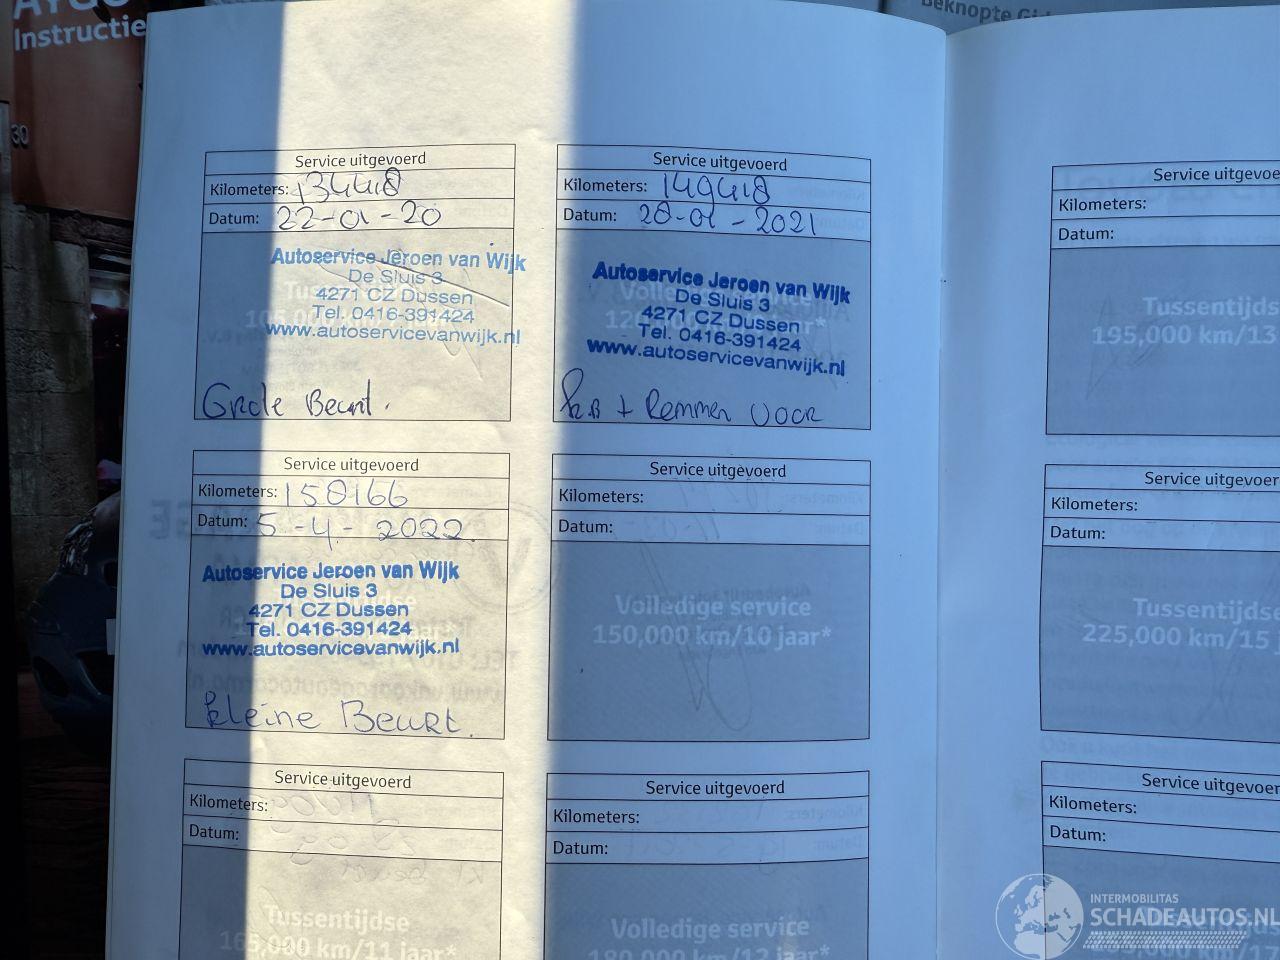 Instructie
Beknopte
30
Service uitgevoerd
Kilometers: 134418
Datum: 22-01-20
Autoservice Jeroen van Wijk
De Sluis 3
4271 CZ Dussen
Tel. 0416-391424
www.autoservicevanwijk.nl
Grote Beurt.
Service uitgevoerd
Kilometers: 149418
Datum: 28-01-2021
Autoservice Jeroen van Wijk
De Sluis 3
4271 CZ Dussen
Tel. 0416-391424
www.autoservicevanwijk.nl
+ Remmen Voor
Service uitgevoerd
Kilometers: 158166
Datum: 5-4-2022
Autoservice Jeroen van Wijk
De Sluis 3
4271 CZ Dussen
Tel. 0416-391424
www.autoservicevanwijk.nl
Kleine Beurt.
Service uitgevoerd
Kilometers:
Datum:
Volledige service
150,000 km/10 jaar*
Service uitgevoerd
Kilometers:
Datum:
Tussentijdse
165,000 km/11 jaar*
Service uitgevoerd
Kilometers:
Datum:
Volledige service
180,000 km/12 jaar*
Service uitgevoe
Kilometers:
Datum:
Tussentijds
195,000 km/13
Service uitgevoer
Kilometers:
Datum:
Tussentijdse
225,000 km/15 j
Service uitgevoer
Kilometers:
Datum:
INTERMOBILITAS
SCHADEAUTOS.NL